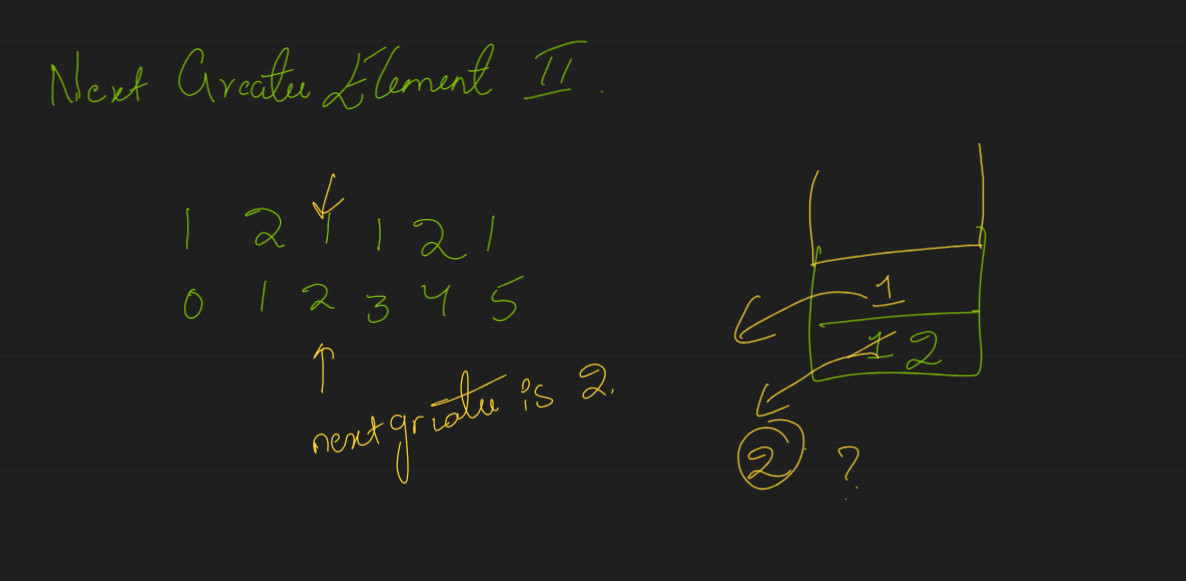 Next Greater Element II.
1 2 1 1 2 1
0 1 2 3 4 5
next griater is 2.
1
1 2
2 ?